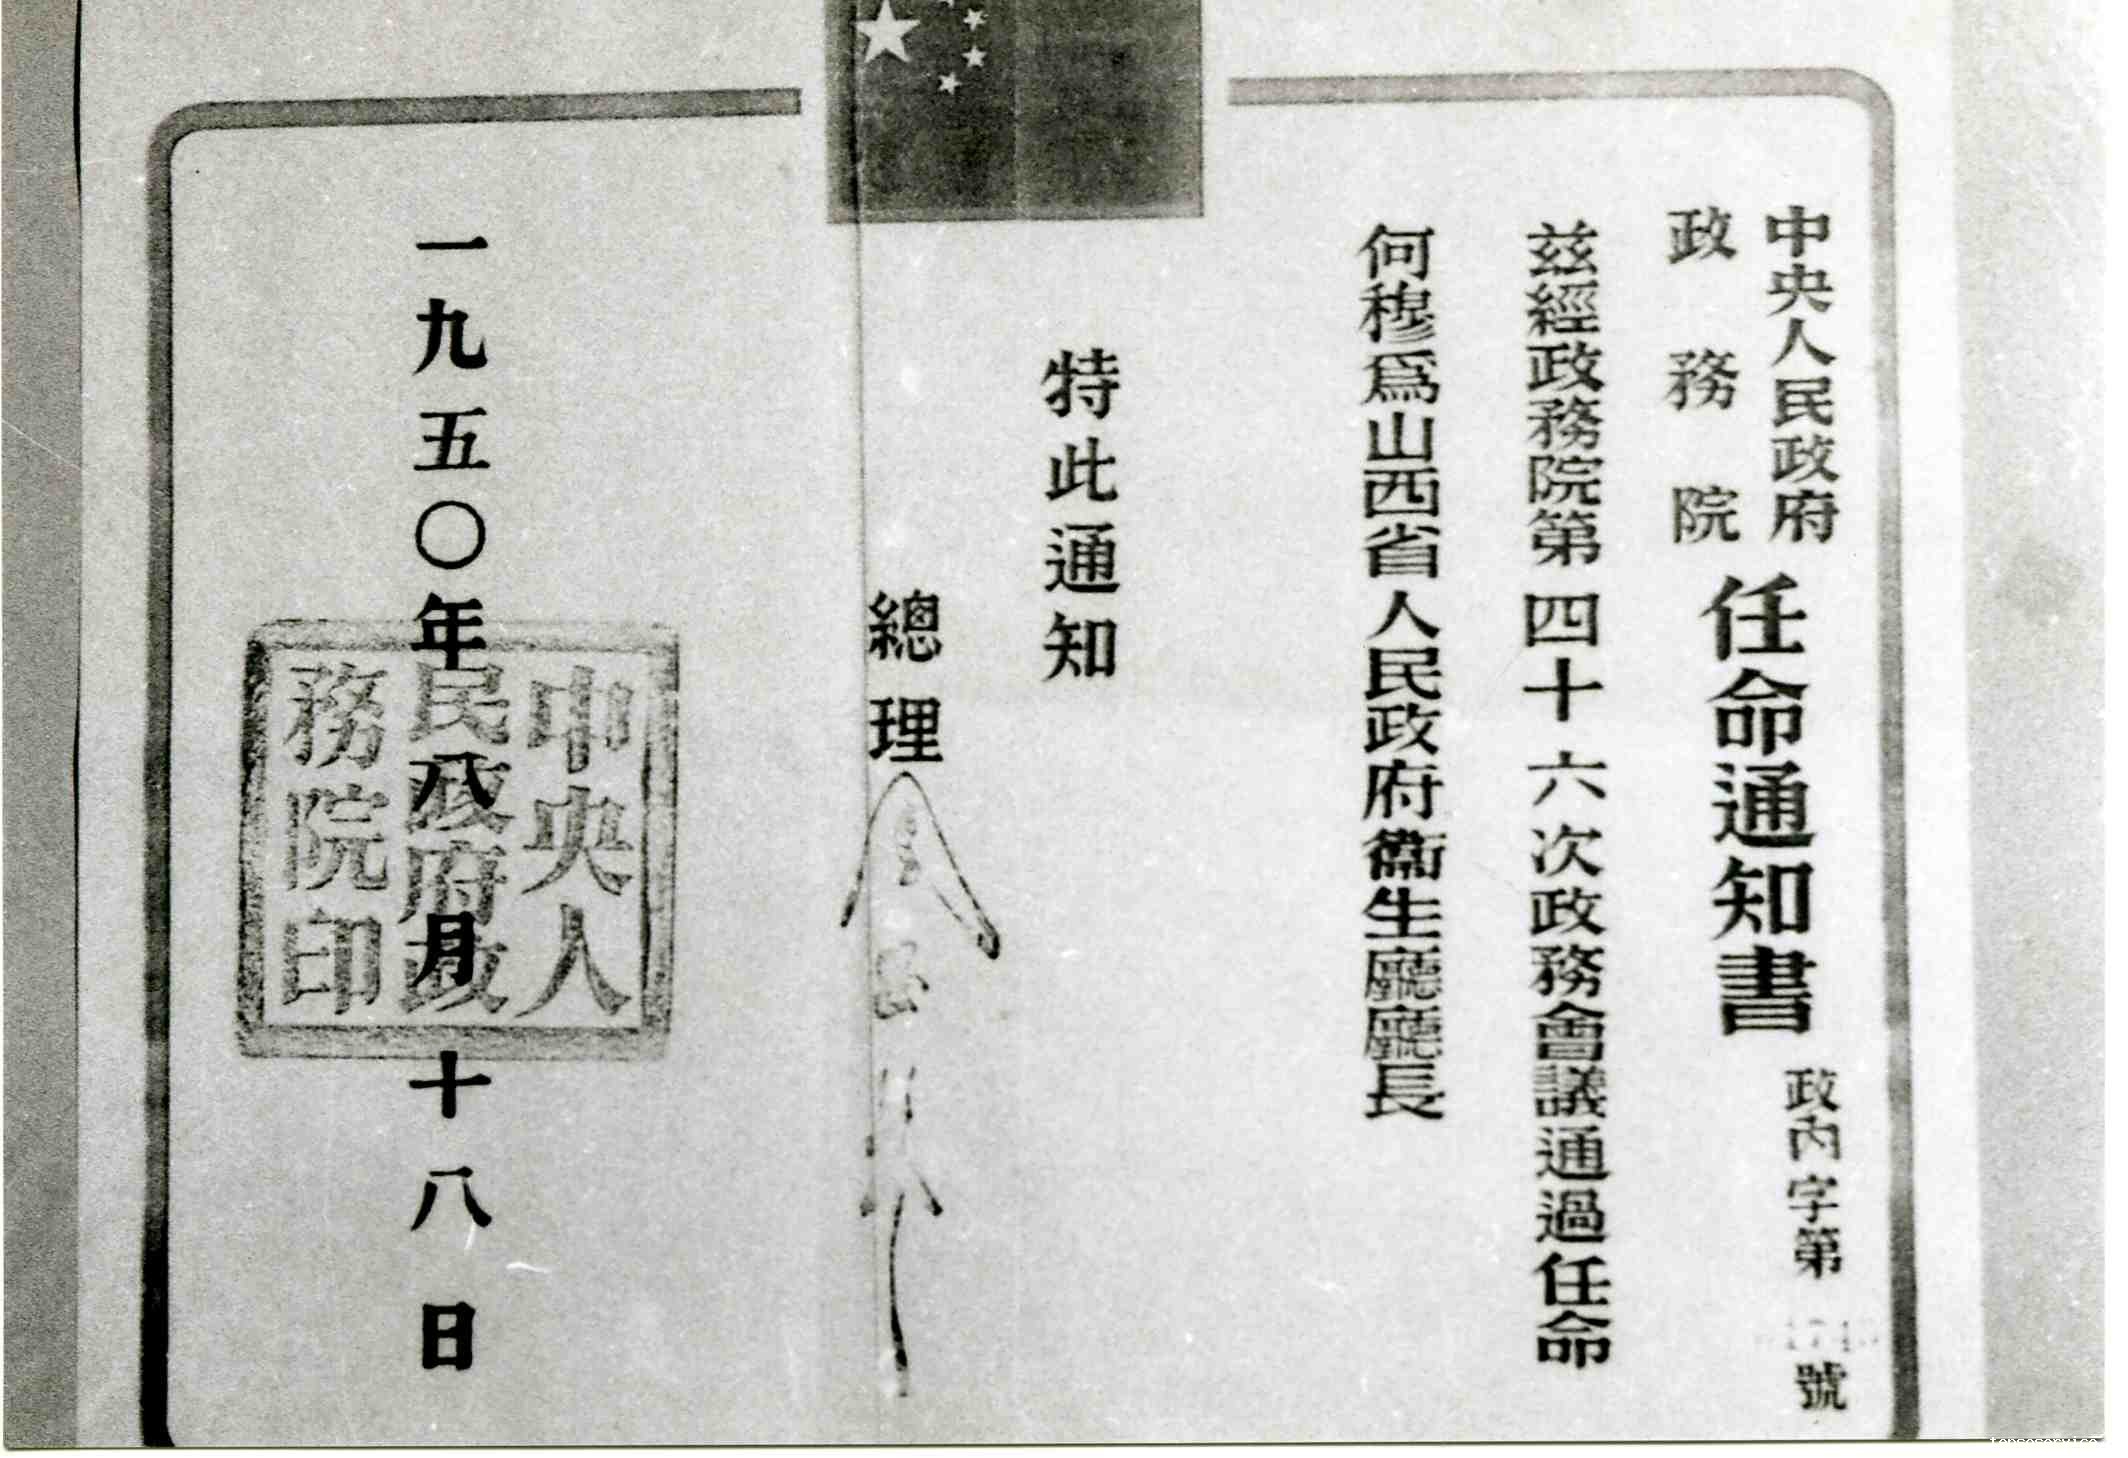 中央人民政府
政務院
任命通知書
政內字第
號
茲經政務院第四十六次政務會議通過任命
何穆爲山西省人民政府衞生廳廳長
特此通知
總理
一九五〇年八月十八日
中央人
民政府政
務院印